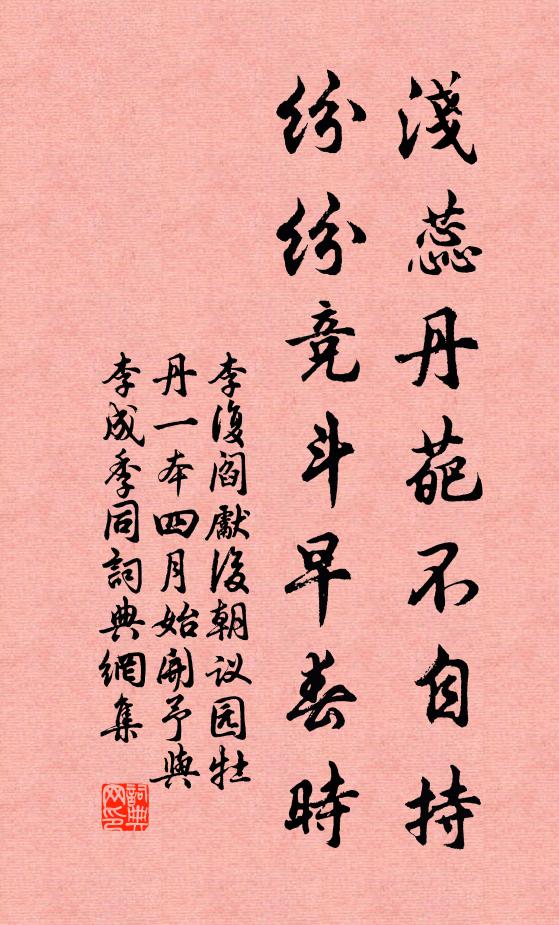 淺蕊丹葩不自持
紛紛競斗早春時
李復閻獻後朝议园牡
丹一本四月始開予與
李成季同詞典網集
詞典
网印